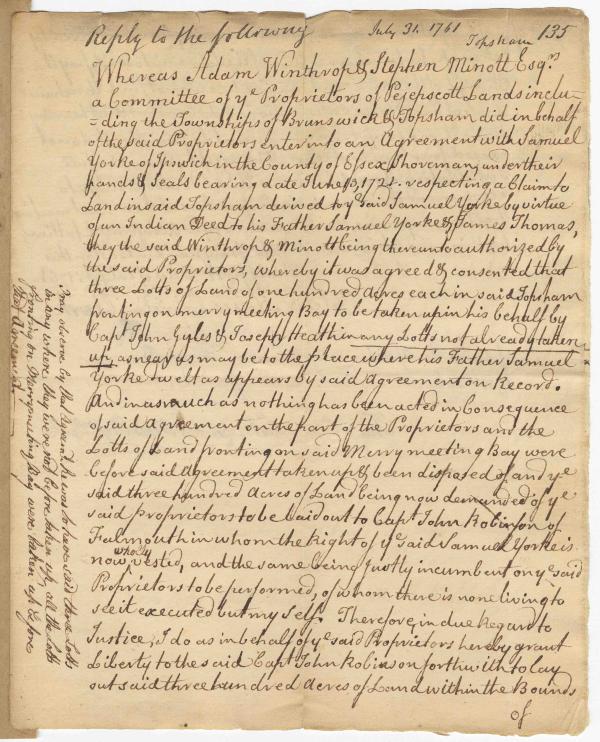 Reply to the following
July 31. 1761
Topsham
135
Whereas Adam Winthrop & Stephen Minott Esqrs
a Committee of ye Proprietors of Pejepscott Lands inclu-
-ding the Townships of Brunswick & Topsham did in behalf
of the said Proprietors enter into an Agreement with Samuel
Yorke of Ipswich in the County of Essex Shoreman, under their
hands & Seals bearing date June 13, 1721. respecting a Claim to
Land in said Topsham derived to ye said Samuel Yorke by virtue
of an Indian Deed to his Father Samuel Yorke & James Thomas,
they the said Winthrop & Minott being thereunto authorized by
the said Proprietors, whereby it was agreed & consented that
three Lotts of Land of one hundred Acres each in said Topsham
fronting on merry meeting Bay to be taken up in his behalf by
Capt John Gyles & Joseph Heath in any Lotts not already taken
up, as near as may be to the place where his Father Samuel
Yorke dwelt as appears by said Agreement on Record.
And in as much as nothing has been acted in Consequence
of said Agreement on the part of the Proprietors and the
Lotts of Land fronting on said Merry meeting Bay were
before said Agreement taken up & been disposed of and ye
said three hundred Acres of Land being now demanded of ye
said Proprietors to be laid out to Capt John Robinson of
Falmouth in whom the Right of ye said Samuel Yorke is
wholly
now vested, and the same being Justly incumbent on ye said
Proprietors to be performed, of whom there is none living to
see it executed but my self. Therefore, in due regard to
Justice, I do as in behalf of ye said Proprietors hereby grant
Liberty to the said Capt John Robinson forthwith to lay
out said three hundred Acres of Land within the Bounds
of
Pray observe by that Agreemt he was to have said three Lotts
in any where they were not before taken up, all the Lotts
fronting on Merrymeeting Bay were taken up before
that Agreement